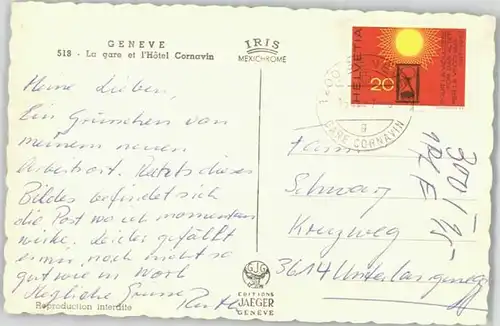 GENEVE
518 - La gare et l'Hôtel Cornavin
IRIS
MEXICHROME
HELVETIA
20
GARE CORNAVIN
g
Meine Lieben,
Ein Grüsschen von
meinem neuen
Arbeitsort. Rechts dieses
Bildes befindet sich
die Post wo ich momentan
wirke. Leider gefällt
es mir noch nicht so
gut wie in Worb
Herzliche Grüsse
Ruth
Fam.
Schwarz
Kreuzweg
3614 Unterlangenegg
EDITIONS
JAEGER
GENEVE
Reproduction interdite